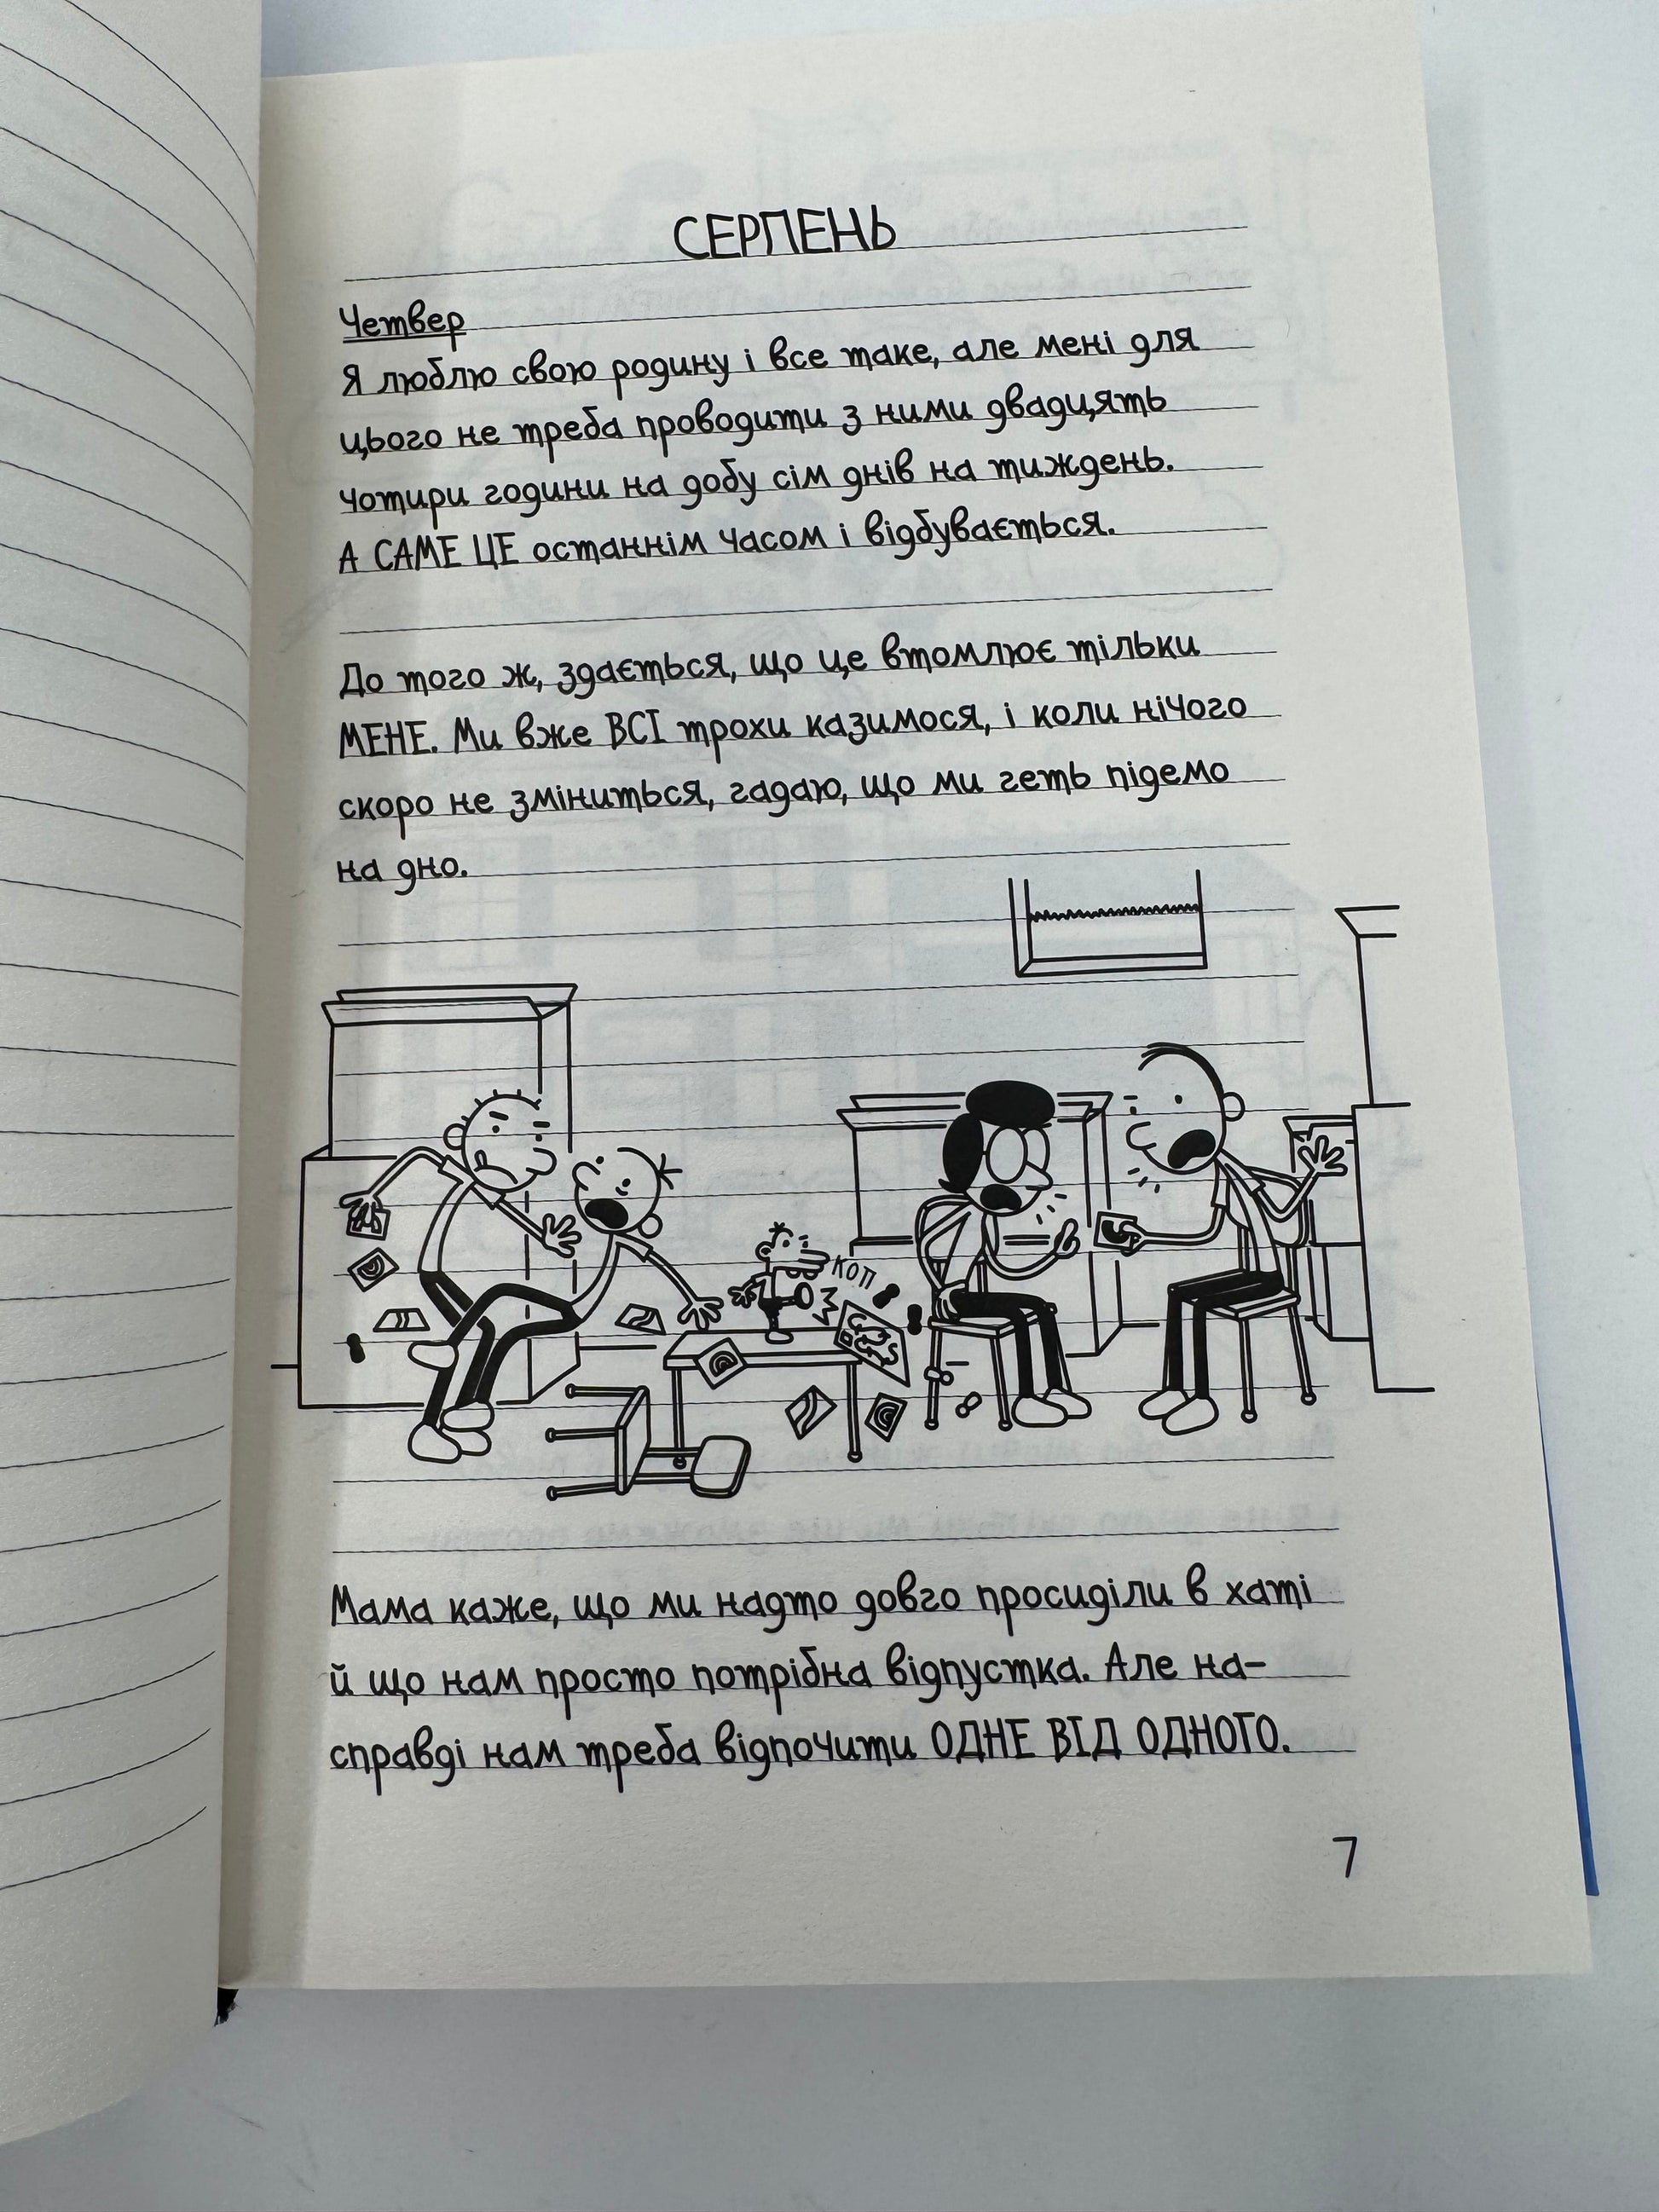 СЕРПЕНЬ
Четвер
Я люблю свою родину і все таке, але мені для
цього не треба проводити з ними двадцять
чотири години на добу сім днів на тиждень.
А САМЕ ЦЕ останнім часом і відбувається.
До того ж, здається, що це втомлює тільки
МЕНЕ. Ми вже ВСІ трохи казимося, і коли нічого
скоро не зміниться, гадаю, що ми геть підемо
на дно.
КОП
Мама каже, що ми надто довго просиділи в хаті
й що нам просто потрібна відпустка. Але на-
справді нам треба відпочити ОДНЕ ВІД ОДНОГО.
7